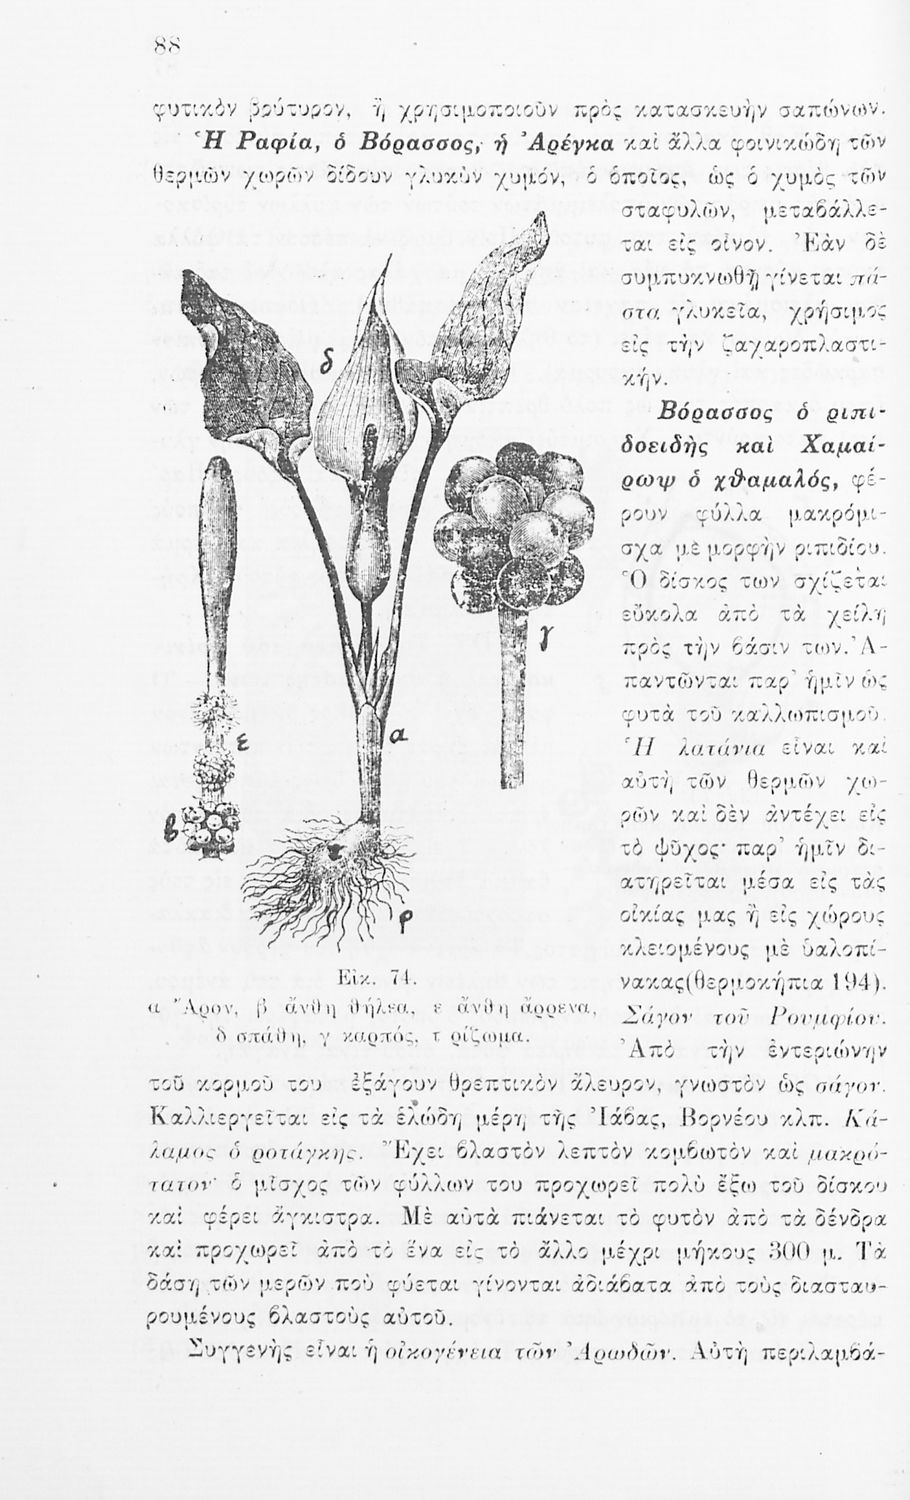 88
φυτικὸν βούτυρον, ἢ χρησιμοποιοῦν πρὸς κατασκευὴν σαπώνων.
Ἡ Ραφία, ὁ Βόρασσος, ἡ Ἀρέγκα καὶ ἄλλα φοινικώδη τῶν
θερμῶν χωρῶν δίδουν γλυκὺν χυμόν, ὁ ὁποῖος, ὡς ὁ χυμὸς τῶν
σταφυλῶν, μεταβάλλε-
ται εἰς οἶνον. Ἐὰν δὲ
συμπυκνωθῇ γίνεται πά-
στα γλυκεῖα, χρήσιμος
εἰς τὴν ζαχαροπλαστι-
κήν.
Βόρασσος ὁ ριπι-
δοειδὴς καὶ Χαμαί-
ρωψ ὁ χθαμαλός, φέ-
ρουν φύλλα μακρόμι-
σχα μὲ μορφὴν ριπιδίου.
Ὁ δίσκος των σχίζεται
εὔκολα ἀπὸ τὰ χείλη
πρὸς τὴν βάσιν των. Ἀ-
παντῶνται παρ' ἡμῖν ὡς
φυτὰ τοῦ καλλωπισμοῦ.
Ἡ λατάνια εἶναι καὶ
αὐτὴ τῶν θερμῶν χω-
ρῶν καὶ δὲν ἀντέχει εἰς
τὸ ψῦχος· παρ' ἡμῖν δι-
ατηρεῖται μέσα εἰς τὰς
οἰκίας μας ἢ εἰς χώρους
κλειομένους μὲ ὑαλοπί-
νακας(θερμοκήπια 194).
Σάγον τοῦ Ρουμφίου.
Ἀπὸ τὴν ἐντεριώνην
δ
γ
α
ε
β
ρ
Εἰκ. 74.
α Ἄρον, β ἄνθη θήλεα, ε ἄνθη ἄρρενα,
δ σπάθη, γ καρπός, τ ρίζωμα.
τοῦ κορμοῦ του ἐξάγουν θρεπτικὸν ἄλευρον, γνωστὸν ὡς σάγον.
Καλλιεργεῖται εἰς τὰ ἑλώδη μέρη τῆς Ἰάβας, Βορνέου κλπ. Κά-
λαμος ὁ ροτάγκης. Ἔχει βλαστὸν λεπτὸν κομβωτὸν καὶ μακρό-
τατον· ὁ μῖσχος τῶν φύλλων του προχωρεῖ πολὺ ἔξω τοῦ δίσκου
καὶ φέρει ἄγκιστρα. Μὲ αὐτὰ πιάνεται τὸ φυτὸν ἀπὸ τὰ δένδρα
καὶ προχωρεῖ ἀπὸ τὸ ἕνα εἰς τὸ ἄλλο μέχρι μήκους 300 μ. Τὰ
δάση τῶν μερῶν ποὺ φύεται γίνονται ἀδιάβατα ἀπὸ τοὺς διασταυ-
ρουμένους βλαστοὺς αὐτοῦ.
Συγγενὴς εἶναι ἡ οἰκογένεια τῶν Ἀρωδῶν. Αὐτὴ περιλαμβά-